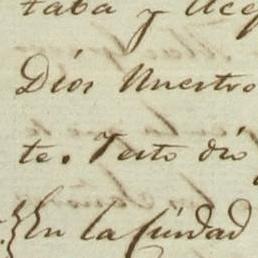 taba y Acep
Dios Nuestro
te. Esto dio
En la Ciudad